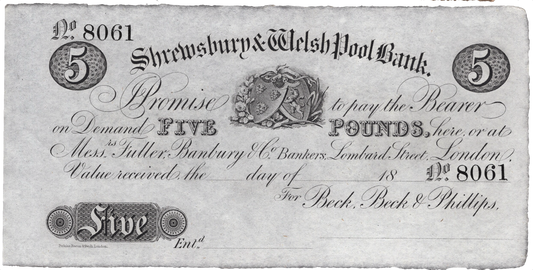 No. 8061
Shrewsbury & Welsh Pool Bank.
5 5
I Promise to pay the Bearer
on Demand FIVE POUNDS, here, or at
Messrs. Fuller, Banbury & Co. Bankers, Lombard Street, London.
Value received, the day of 18 No. 8061
For Beck, Beck & Phillips,
Five
Entd.